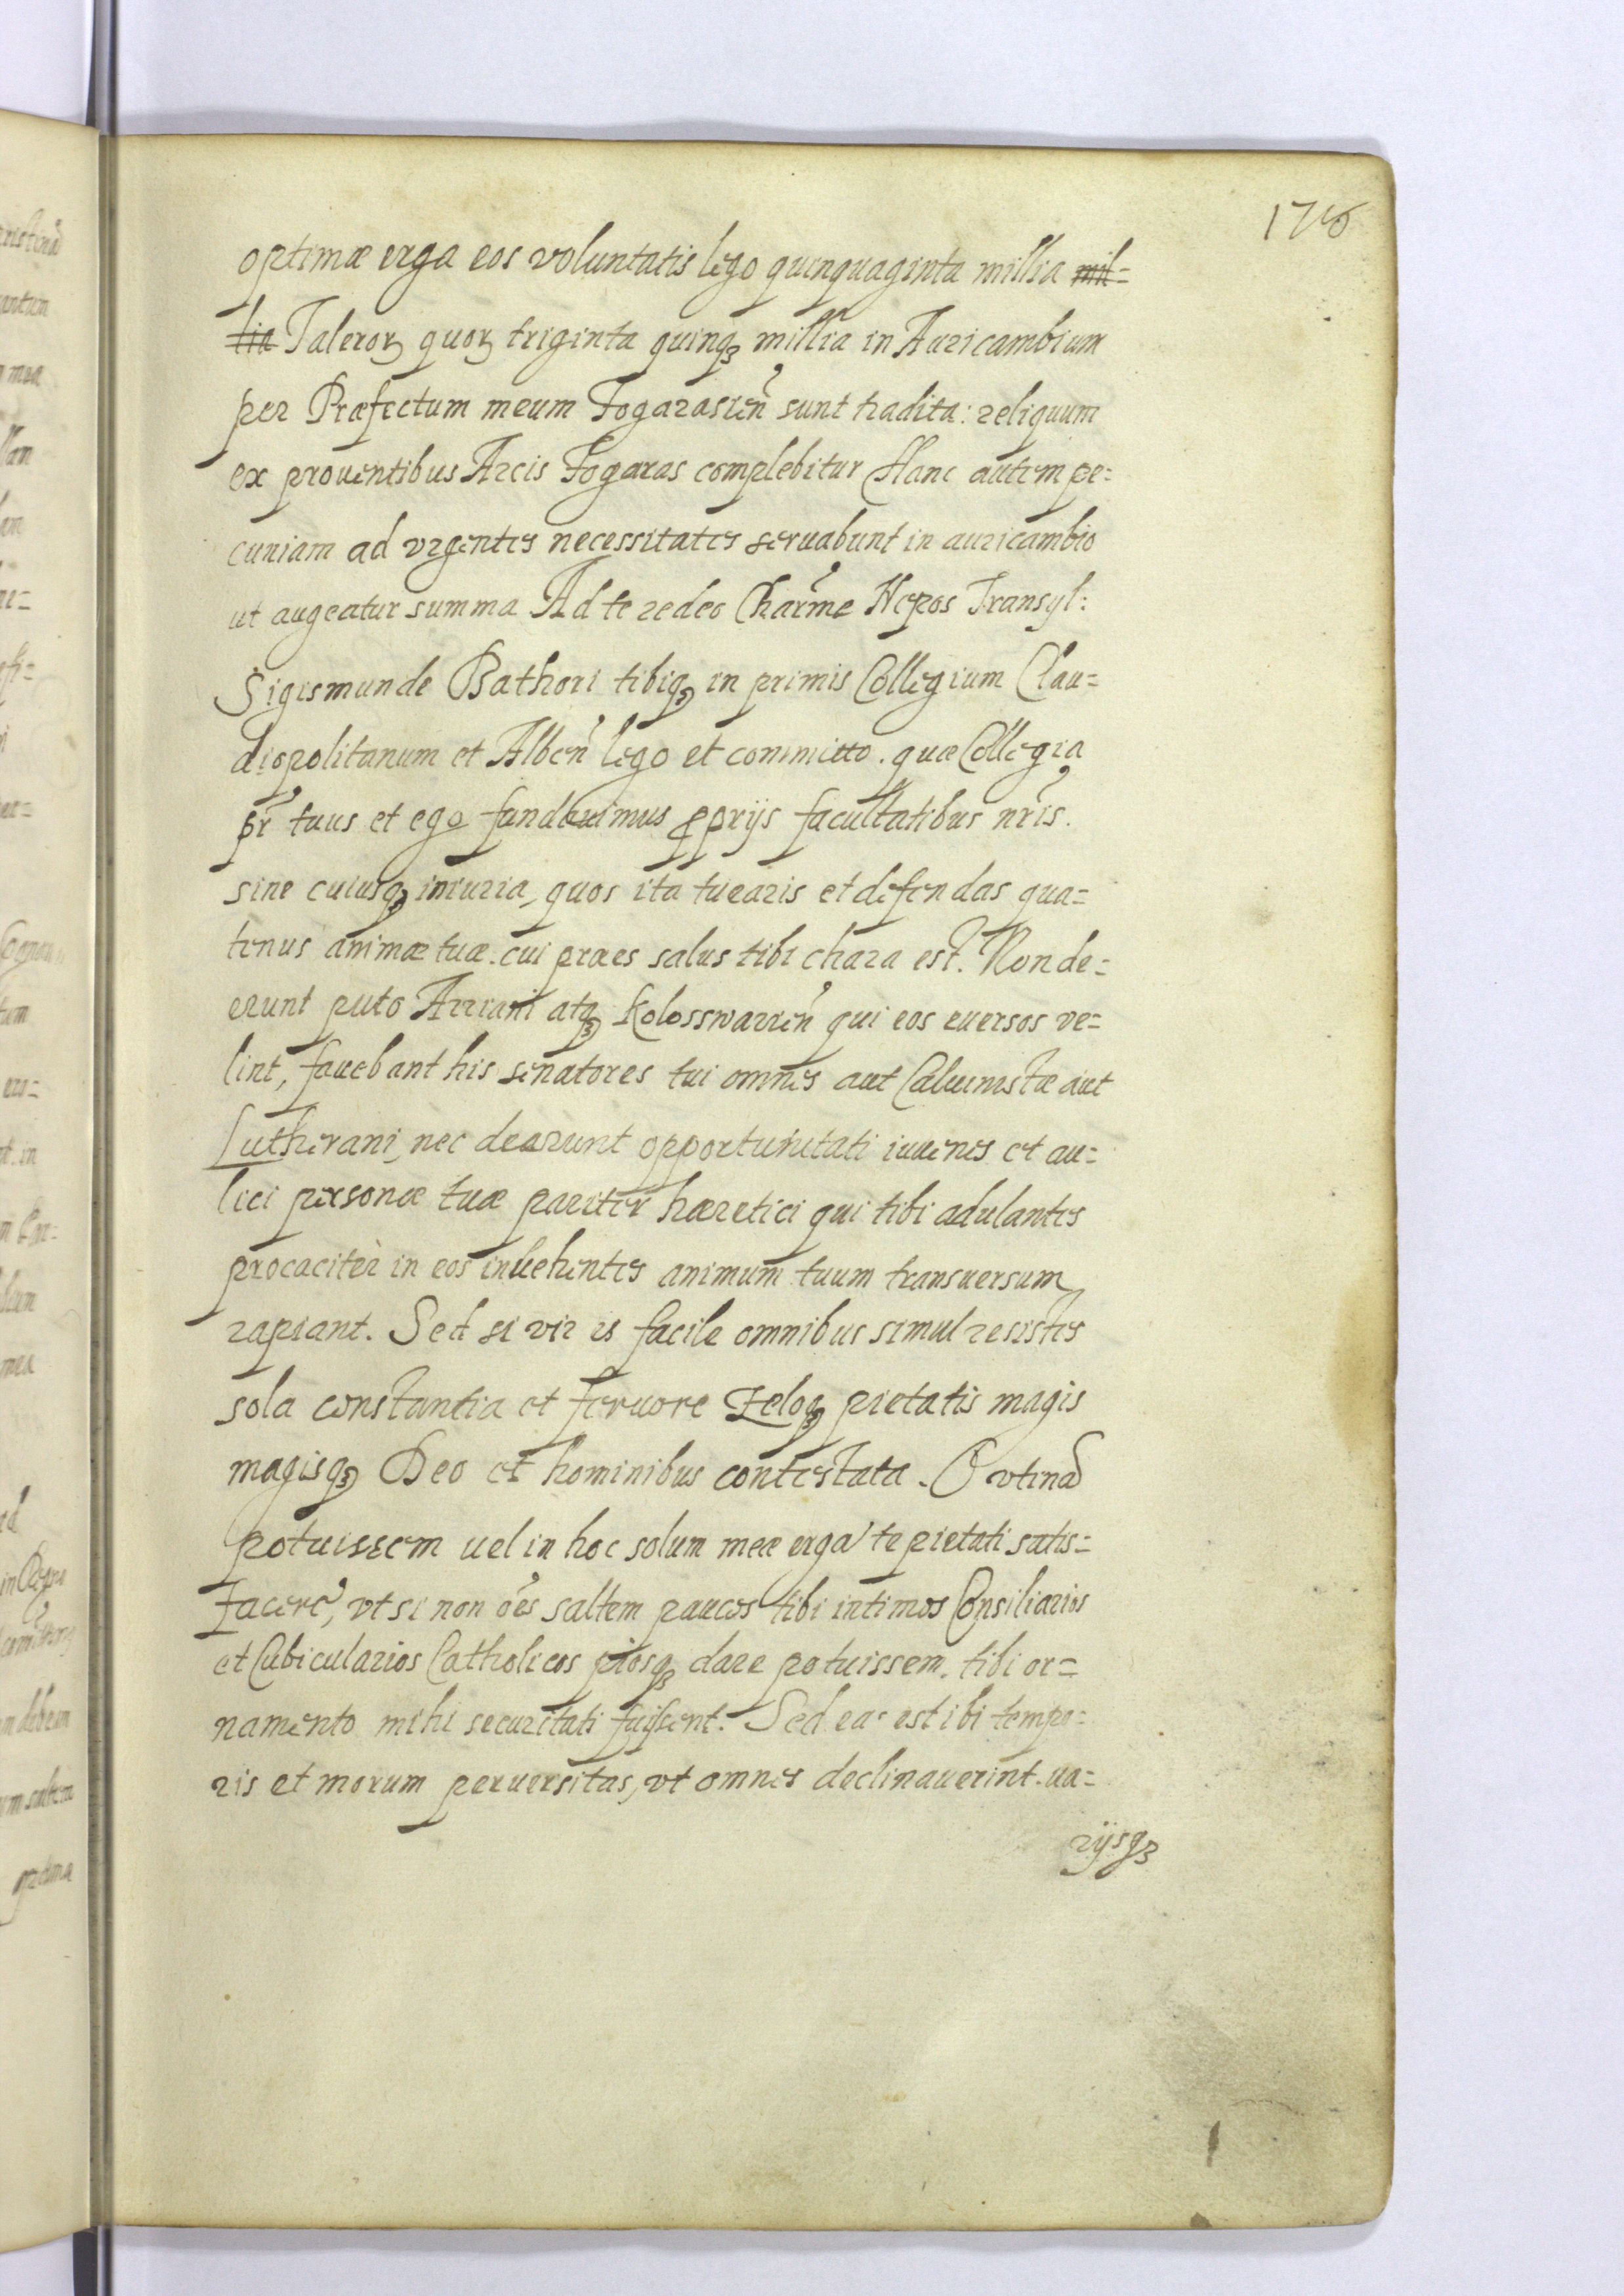 optimæ erga eos voluntatis lego quinquaginta millia mil=
lia Taleroꝝ quoꝝ triginta quinqꝫ millia in Auricambium
per Præfectum meum Fogarasien̄ sunt tradita: reliquum
ex prouentibus Arcis Fogaras complebitur Hanc autem pe=
cuniam ad vrgentes necessitates seruabunt in auricambio
ut augeatur summa Ad te redeo Char̄me Nepos Transyl:
Sigismunde Bathori tibiqꝫ in primis Collegium Clau=
diopolitanum et Alben̄ lego et committo. quæ Collegia
pr̄ tuus et ego fundauimus ꝓprijs facultatibus nr̄is.
sine cuiusqꝫ iniuria, quos ita tuearis et defendas qua=
tenus animæ tuæ. cui praes salus tibi chara est. Non de=
erunt puto Arriani atqꝫ Koloswarien̄ qui eos euersos ve=
lint, fauebant his senatores tui omnes aut Caluinistæ aut
Lutherani, nec deerunt opportunitati iuuenes et au=
lici personæ tuæ pariter hæretici qui tibi adulantes
procacitèr in eos inuehentes animum tuum transuersum
rapiant. Sed si vir is facile omnibus simul resistes
sola constantia et feruore Zeloqꝫ pietatis magis
magisqꝫ Deo et hominibus contestata. O vtinā
potuissem uel in hoc solum meæ erga te pietati satis=
facere, vt si non oēs saltem paucos tibi intimos Consiliarios
et Cubicularios Catholicos piosqꝫ dare potuissem. tibi or=
namento mihi securitati fuissent. Sed ea est ibi tempo=
ris et morum peruersitas, vt omnes declinauerint. ua=
rijsqꝫ